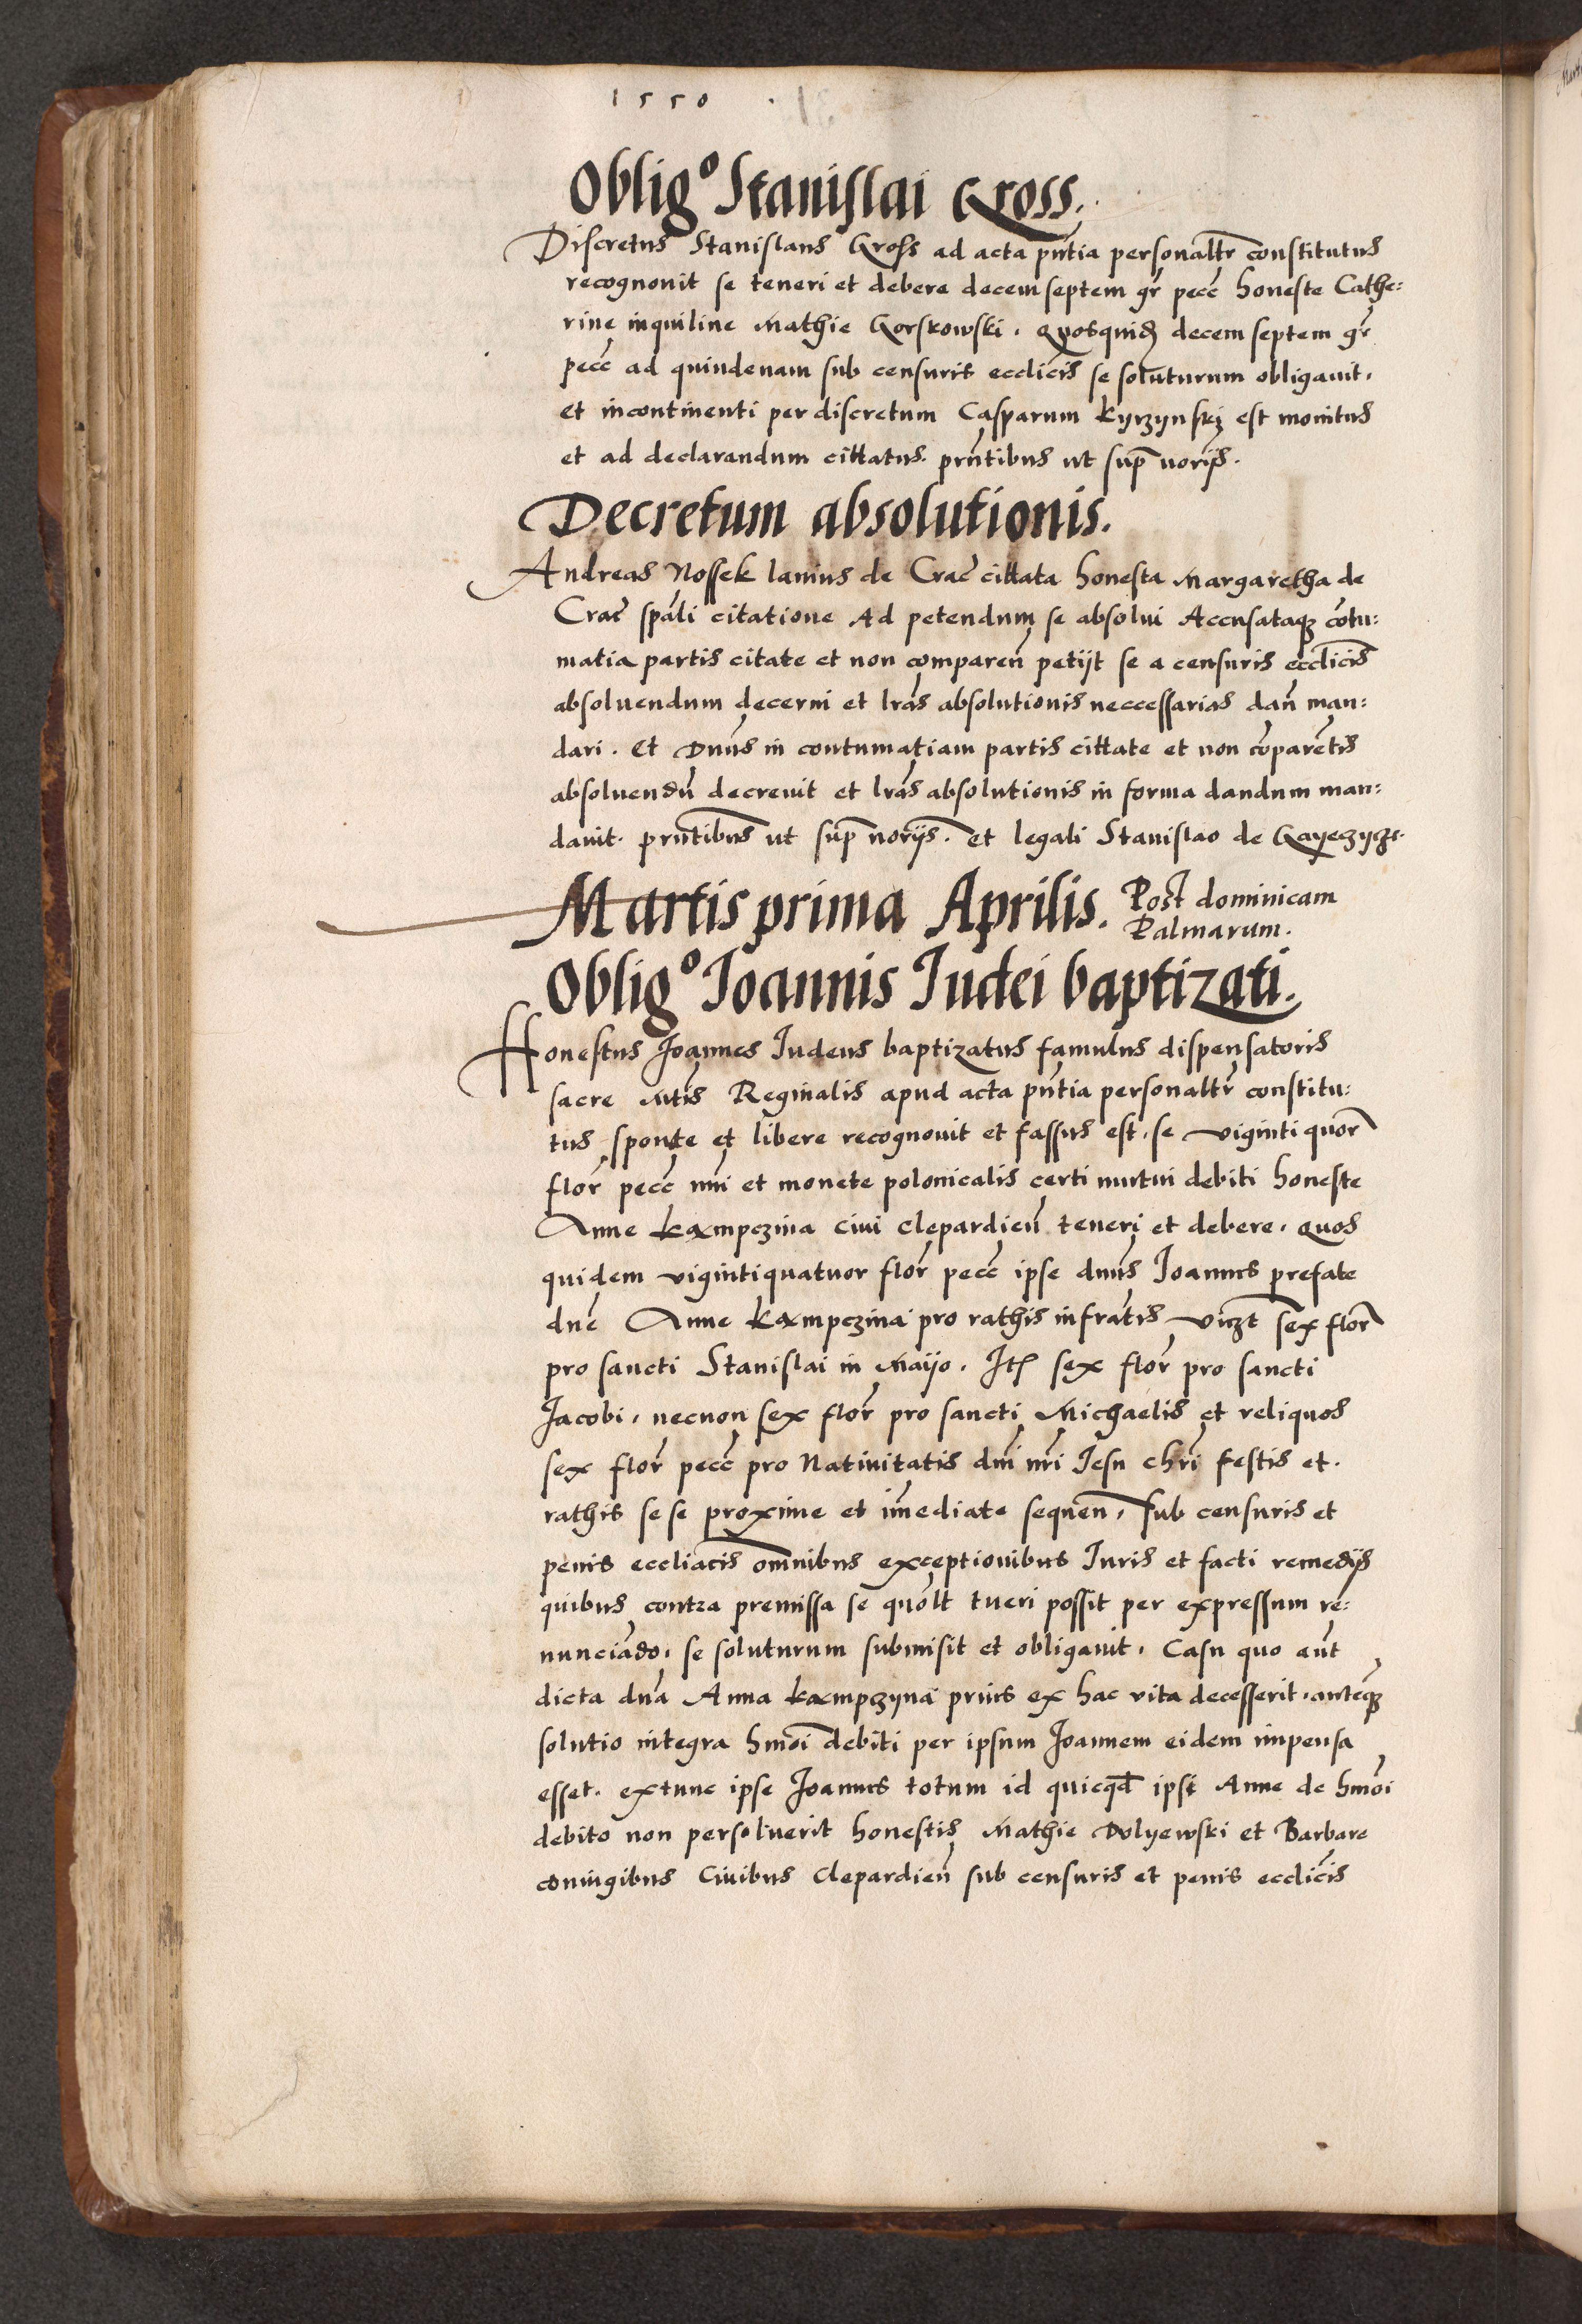 1550
Oblig° Stanislai Gross.
Discretus Stanislaus Gross ad acta pñtia personaltr constitutus
recognouit se teneri et debere decem septem gr pecc honeste Cathe:
rine inquiline Mathie Gorskowski. Quosquid decem septem gr
pecc ad quindenam sub censuris ecclicis se soluturum obligauit,
et incontinenti per discretum Casparum Kyrzynski est monitus
et ad declarandum cittatus. pñtibus ut sup noriis.
Decretum absolutionis.
Andreas Nossek lanius de Crac cittata honesta Margaretha de
Crac spali citatione Ad petendum se absolui Accusataq cõtu:
matia partis citate et non comparen petijt se a censuris ecclicis
absoluendum decerni et lras absolutionis neccessarias dan man:
dari. Et Dnus in contumatiam partis cittate et non cõparentis
absoluendũ decreuit et lras absolutionis in forma dandum man:
dauit. pñtibus ut sup noriis. et legali Stanislao de
Martis prima Aprilis. Post dominicam
Palmarum.
Oblig° Joannis Judei baptizati.
Honestus Joannes Judeus baptizatus famulus dispensatoris
sacre Mtis Reginalis apud acta pñtia personaltr constitu:
tus sponte et libere recognouit et fassus est, se viginti quor
flor pecc nui et monete polonicalis certi mutui debiti honeste
Anne Kampczina ciui clepardien teneri et debere, quos
quidem vigintiquatuor flor pecc ipse dnus Joannes prefate
dne Anne Kampczina pro rathis infratis viczt sex flor
pro sancti Stanislai in Maijo. Itl sex flor pro sancti
Jacobi, necnon sex flor pro sancti Michaelis et reliquos
sex flor pecc pro Natiuitatis dni nri Jesu chri festis et
rathis se se proxime et imediate sequen, sub censuris et
penis eccliacis omnibus exceptionibus Juris et facti remedijs
quibus contra premissa se quolt tueri possit per expressum re:
nunciãdo, se soluturum submisit et obligauit. Casu quo aut
dicta dna Anna Kampczyna prius ex hac vita decesserit, anteq
solutio integra hmoi debiti per ipsum Joannem eidem impensa
esset. extunc ipse Joannes totum id quicqd ipsi Anne de hmoi
debito non persoluerit honestis Mathie Dolyewski et Barbare
coniugibus Ciuibus Clepardien sub censuris et penis ecclicis